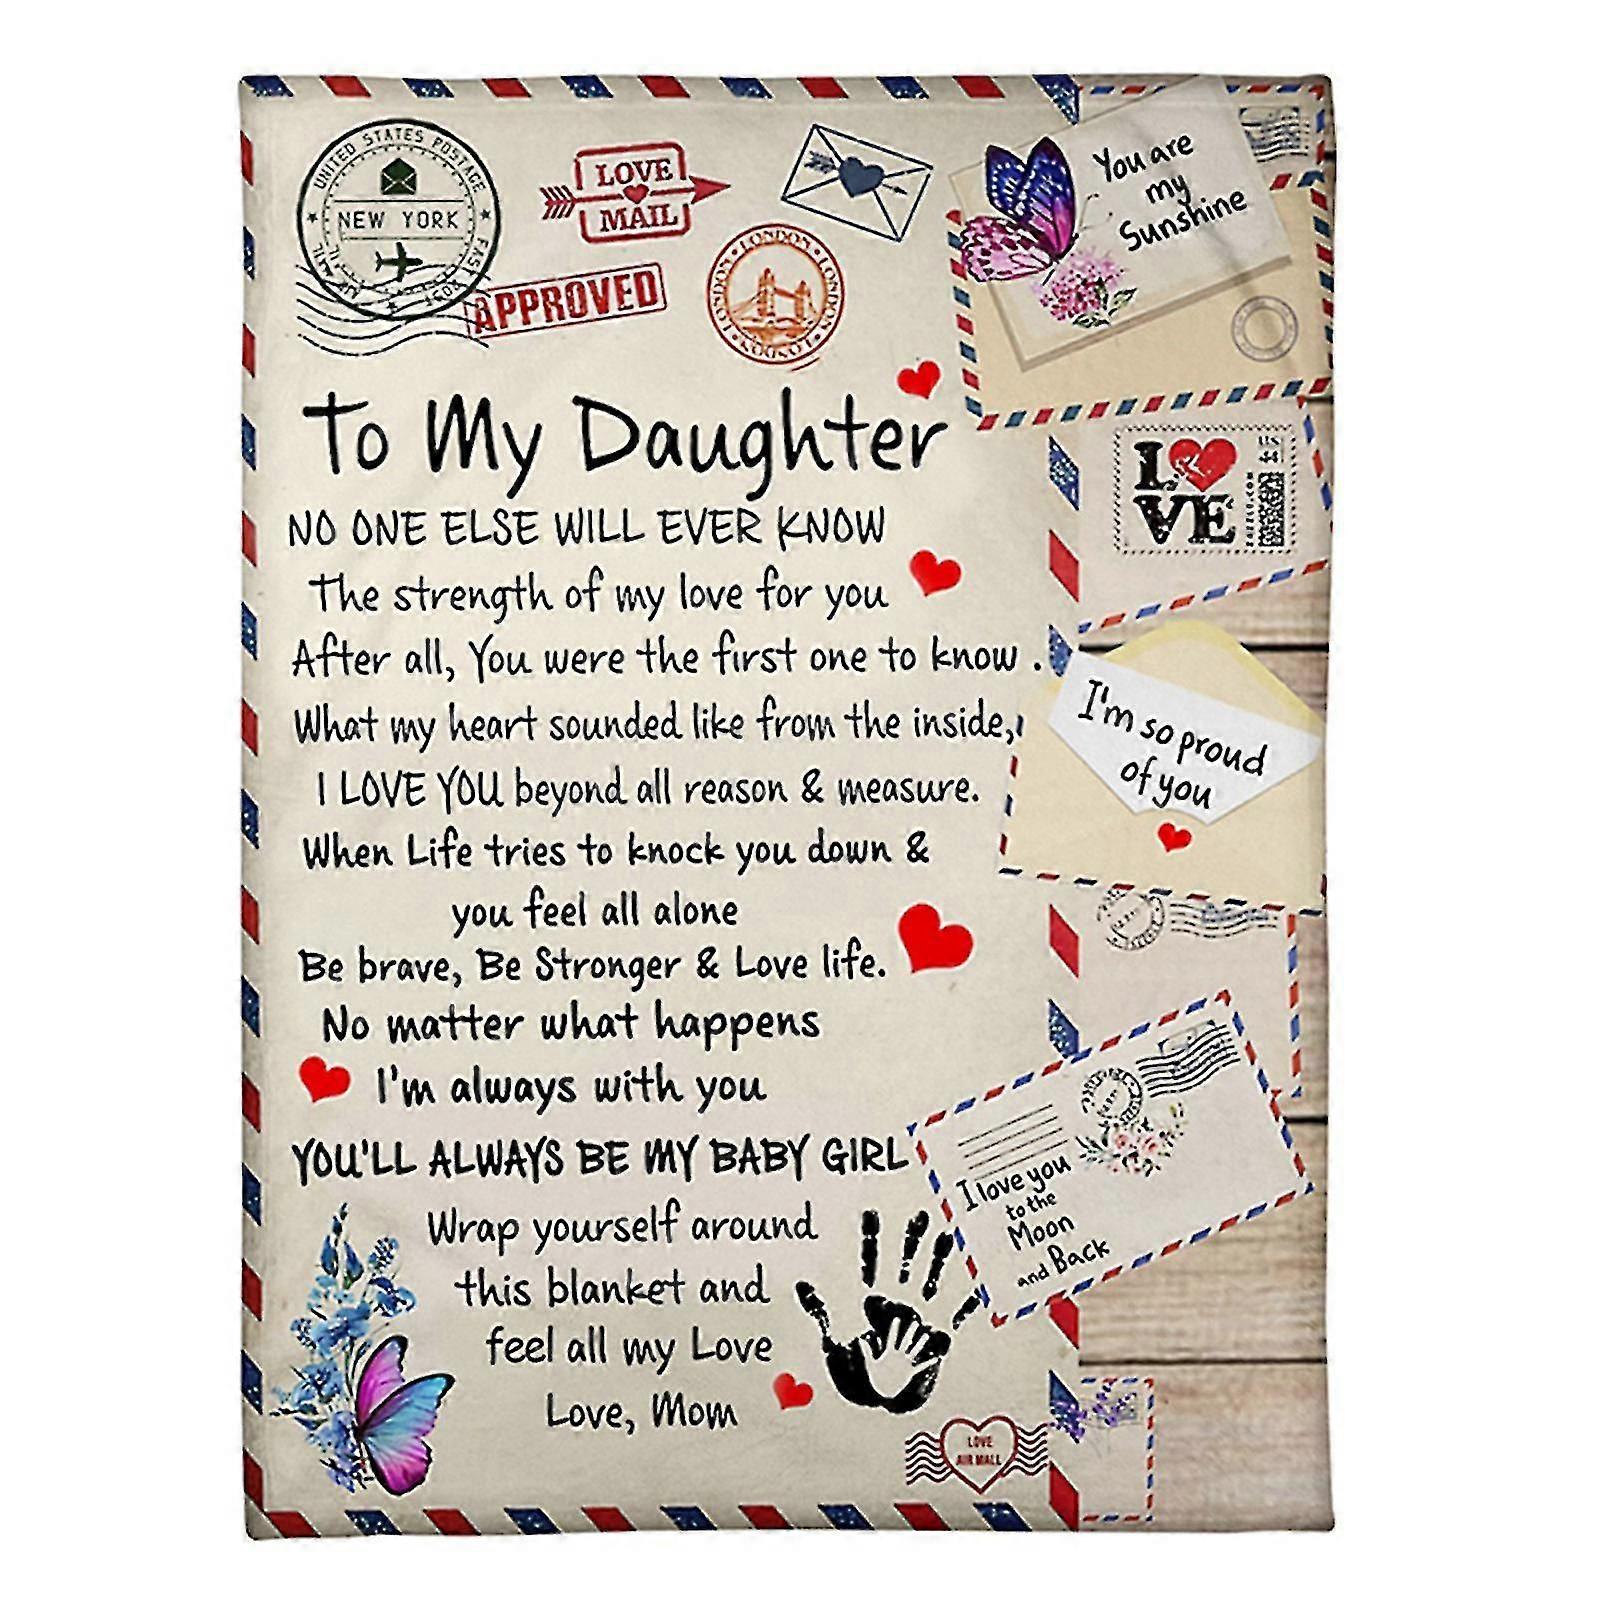 UNITED STATES POSTAGE
NEW YORK
LOVE
MAIL
APPROVED
LONDON · LONDON · LONDON · LONDON
You are
my
Sunshine
To My Daughter
NO ONE ELSE WILL EVER KNOW
The strength of my love for you
After all, You were the first one to know .
What my heart sounded like from the inside,
I LOVE YOU beyond all reason & measure.
When Life tries to knock you down &
you feel all alone
Be brave, Be Stronger & Love life.
No matter what happens
I'm always with you
YOU'LL ALWAYS BE MY BABY GIRL
Wrap yourself around
this blanket and
feel all my Love
Love, Mom
LOVE
US
44
I'm so proud
of you
I love you
to the
Moon
and Back
LOVE
AIR MALL